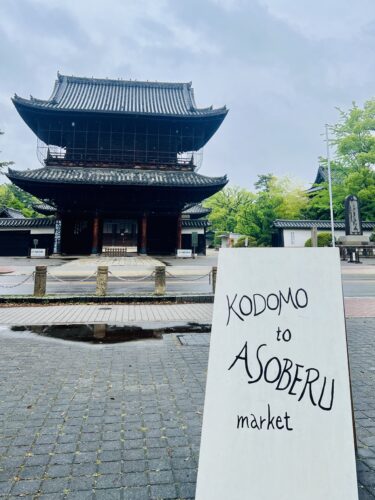 KODOMO
to
ASOBERU
market